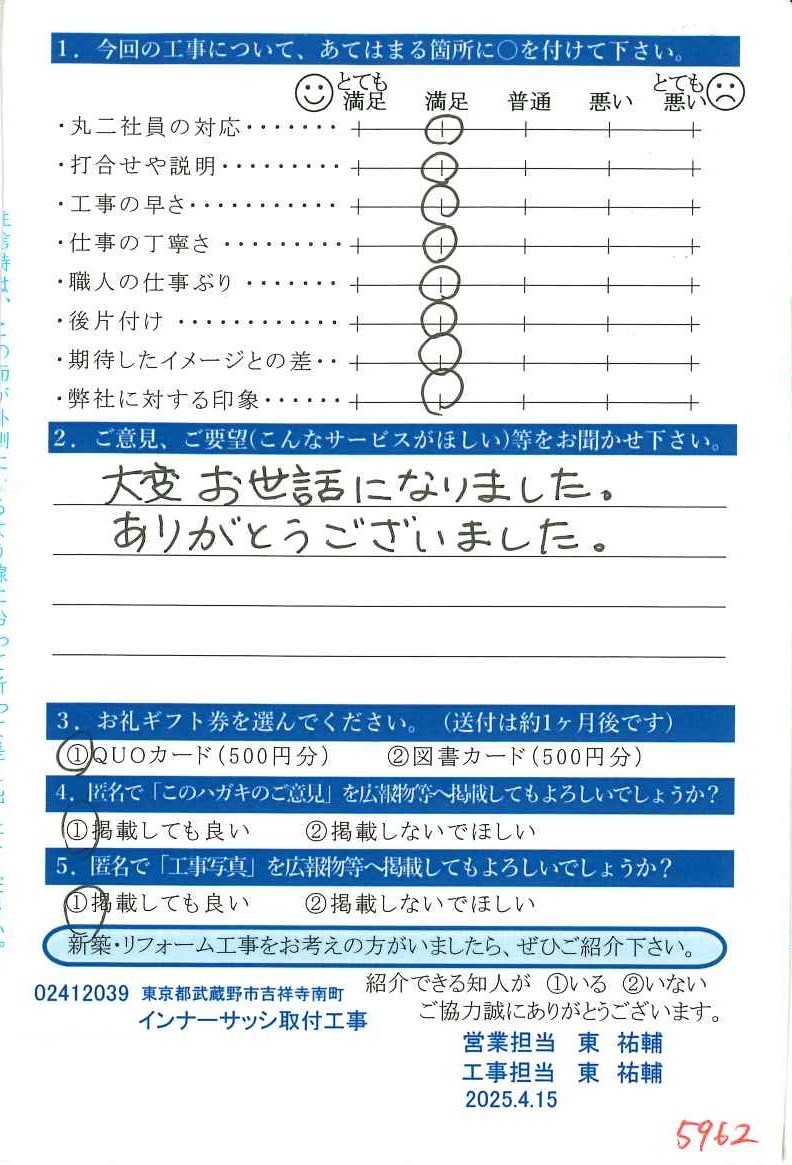 1．今回の工事について、あてはまる箇所に○を付けて下さい。
とても満足 満足 普通 悪い とても悪い
・丸二社員の対応・・・・・・・
・打合せや説明・・・・・・・・・
・工事の早さ・・・・・・・・・・・
・仕事の丁寧さ・・・・・・・・・
・職人の仕事ぶり・・・・・・・
・後片付け・・・・・・・・・・・・
・期待したイメージとの差・・
・弊社に対する印象・・・・・・
2．ご意見、ご要望(こんなサービスがほしい)等をお聞かせ下さい。
大変お世話になりました。
ありがとうございました。
3．お礼ギフト券を選んでください。（送付は約1ヶ月後です）
①QUOカード(500円分) ②図書カード(500円分)
4．匿名で「このハガキのご意見」を広報物等へ掲載してもよろしいでしょうか？
①掲載しても良い ②掲載しないでほしい
5．匿名で「工事写真」を広報物等へ掲載してもよろしいでしょうか？
①掲載しても良い ②掲載しないでほしい
新築・リフォーム工事をお考えの方がいましたら、ぜひご紹介下さい。
紹介できる知人が ①いる ②いない
ご協力誠にありがとうございます。
02412039 東京都武蔵野市吉祥寺南町
インナーサッシ取付工事
営業担当 東 祐輔
工事担当 東 祐輔
2025.4.15
5962